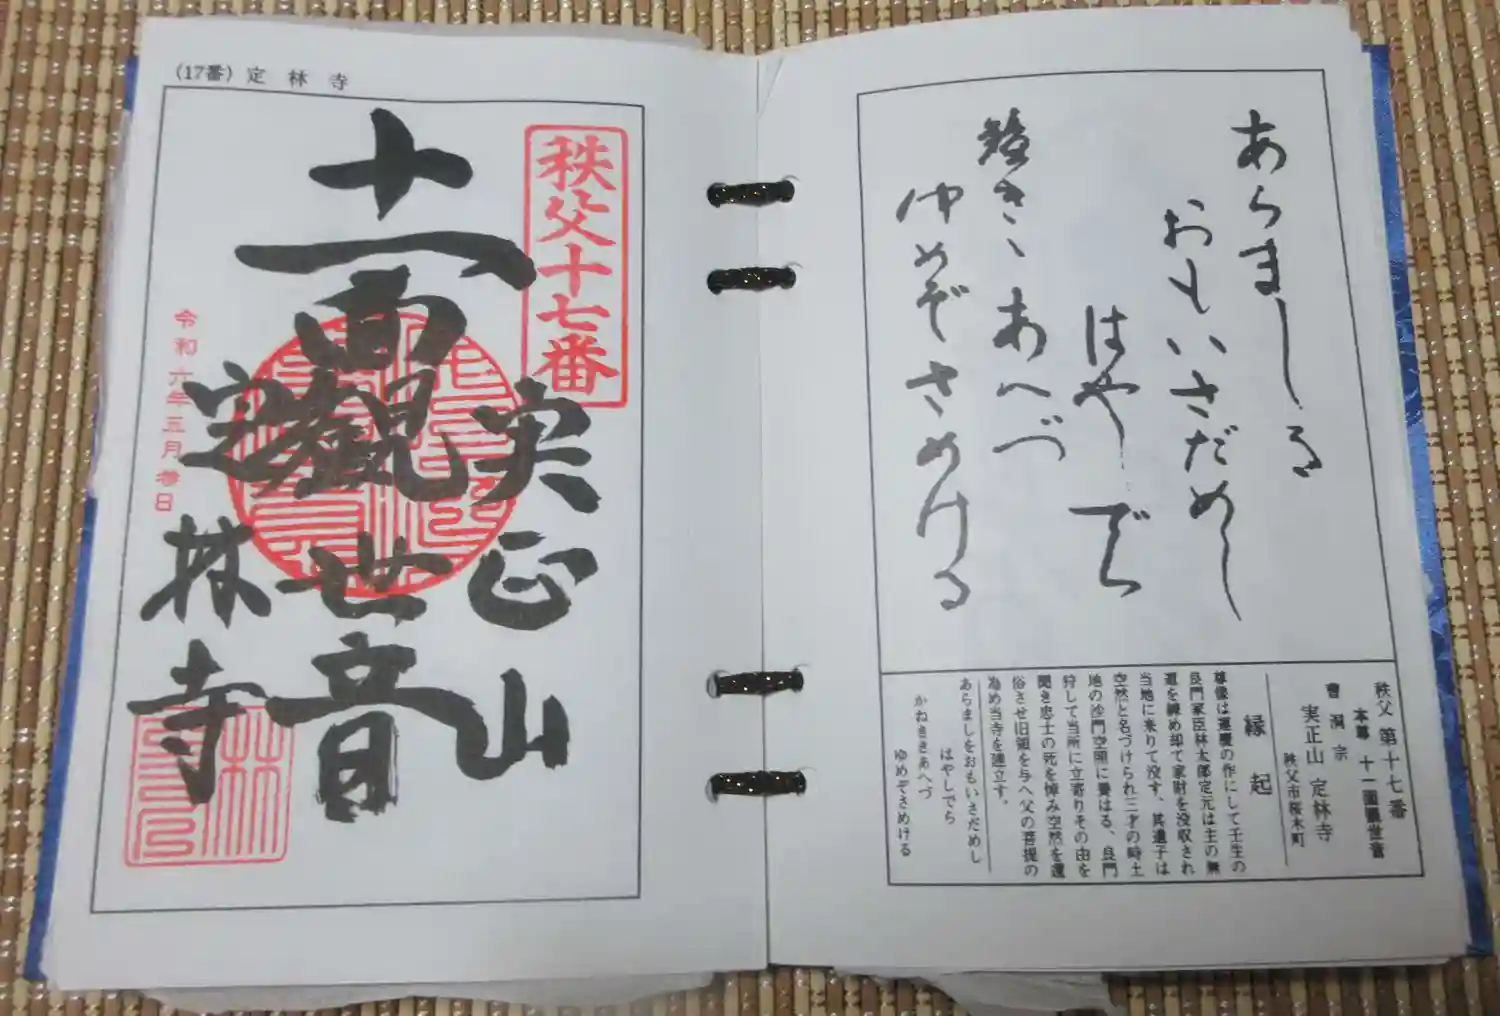 (17番) 定林寺
秩父十七番
十一面
観世音
実正山
定林寺
令和六年五月
日
あらましる
おもいさだめし
はやしでら
鐘きゝあへづ
ゆめぞさめける
秩父 第十七番
本尊 十一面観世音
曹洞宗
実正山 定林寺
秩父市桜木町
縁起
尊像は運慶の作にして壬生の
良門家臣林太郎定元は主の無
道を練め却て家財を没収され
当地に来りて没す、其遺子は
空然と名づけられ三才の時土
地の沙門空照に養はる、良門
狩して当所に立寄りその由を
聞き忠士の死を悼み空然を還
俗させ旧領を与へ父の菩提の
為め当寺を建立す。
あらましをおもいさだめし
はやしでら
かねききあへづ
ゆめぞさめける